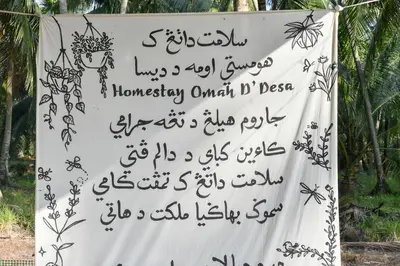 سلامت داتڠ ک
هومستي اومه د ديسا
Homestay Omah D'Desa
جاروم هيلڠ د تڠه جرامي
کاٴين کباي د دالم ڤتي
سلامت داتڠ ک تمڤت کامي
سموݢ بهاݢيا ملکت د هاتي